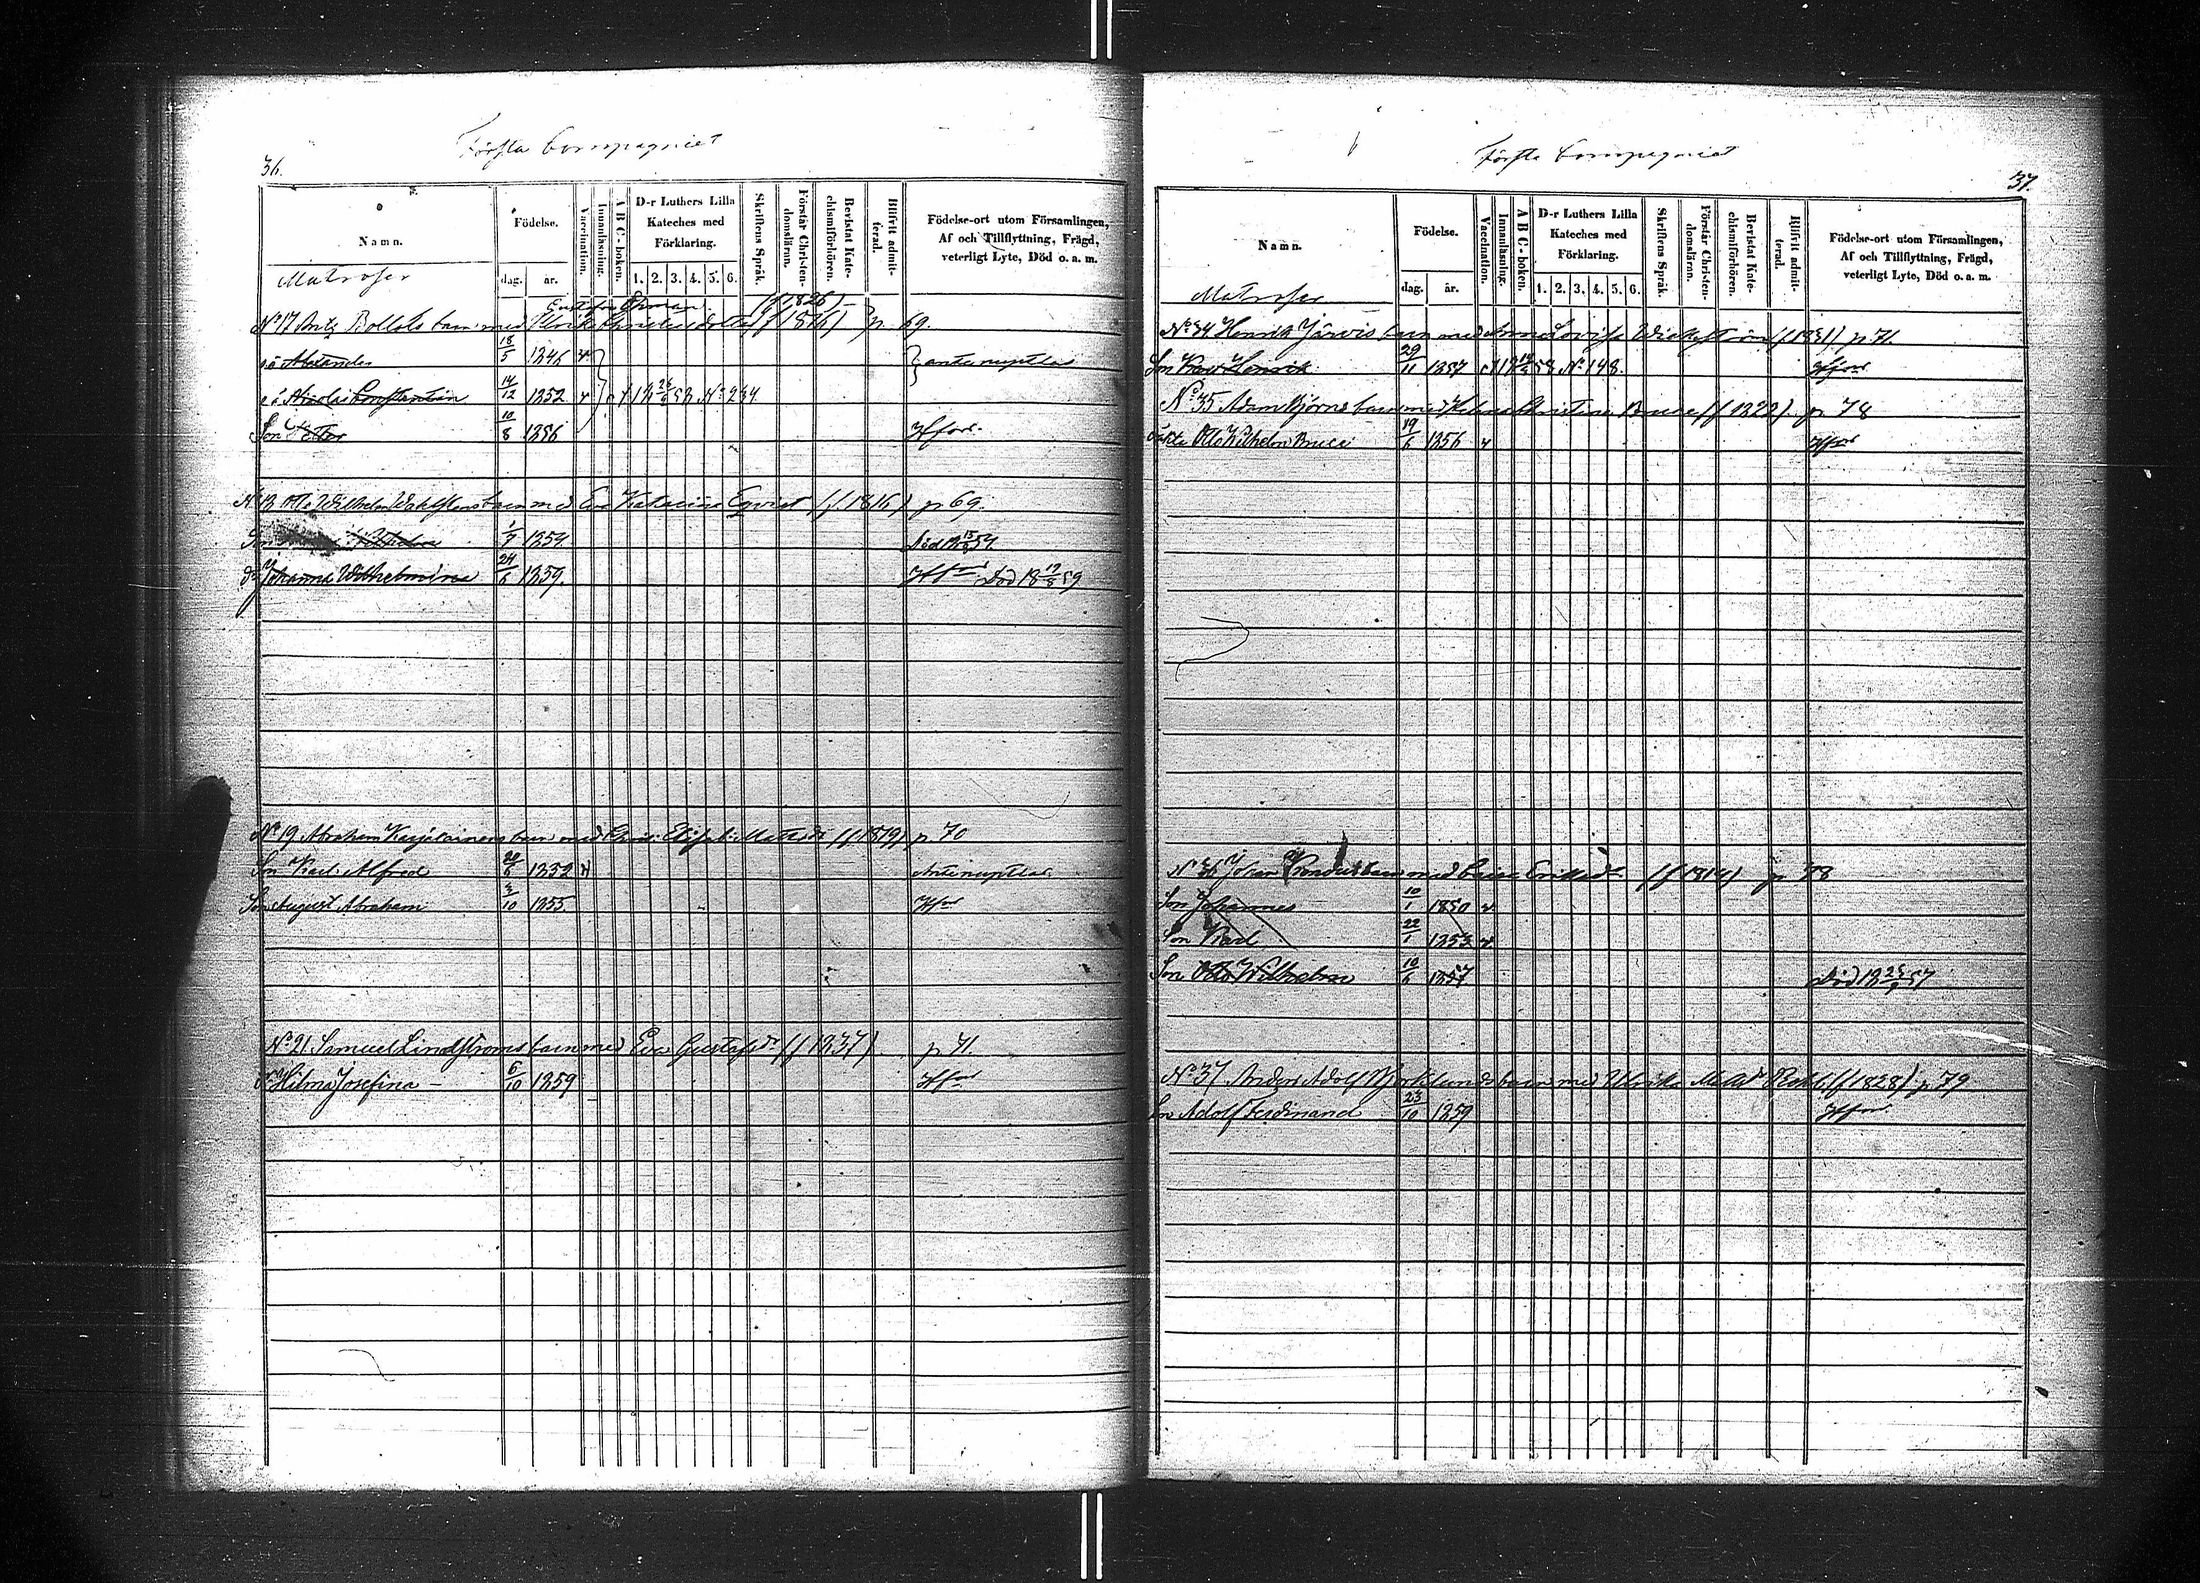 36.
Första Compagniet
Namn.
Födelse.
dag. år.
Vaccination.
Innanläsning.
A B C-boken.
D-r Luthers Lilla
Kateches med
Förklaring.
1. 2. 3. 4. 5. 6.
Skriftens Språk.
Förstår Christen-
domsläran.
Bevistat Kate-
chismiförhören.
Blifvit admit-
terad.
Födelse-ort utom Församlingen,
Af och Tillflyttning, Frägd,
veterligt Lyte, Död o. a. m.
Matroser
(f 1826)
No 17 barn med Ulrika p. 69.
Alexander 18/5 1846 antenuptla
Nicolai Constantin 14/12 1852 No 234
Son Petter 10/8 1856 Hfors
No 18 Otto Wilhelm barn med Eva Katarina Eqvist (f 1816) p 69.
Son 1/7 1854. Död
Dr Johanna Wilhelmina 24/6 1859. Hfors Död 18 19/8 59
No 19 Abraham Karjalainens barn med Elisab. p. 70
Son Karl Alfred 20/6 1852 Antenuptlas
Son August Abraham 3/10 1855 Hfors
No 21 Samuel Lindströms barn med Eva Gustafsdr (f 1837) p 71.
Dr Hilma Josefina 6/10 1859 Hfors
37.
Första Compagniet
Namn.
Födelse.
dag. år.
Vaccination.
Innanläsning.
A B C-boken.
D-r Luthers Lilla
Kateches med
Förklaring.
1. 2. 3. 4. 5. 6.
Skriftens Språk.
Förstår Christen-
domsläran.
Bevistat Kate-
chismiförhören.
Blifvit admit-
terad.
Födelse-ort utom Församlingen,
Af och Tillflyttning, Frägd,
veterligt Lyte, Död o. a. m.
Matroser
No 34 Henrik Järvis barn med Anna Lovisa p 71.
Son Karl Henrik 29/11 1857 58 No 148. Hfors
No 35 Adam Björns barn med Helena Christina Bruce (f 1822) p 78
Otto Wilhelm Bruce 19/6 1856 Hfors
No 36 Johan barn med Caisa (f 1814) p 78
Son Johannes 10/1 1850
Son Karl 22/1 1853
Son Otto Wilhelm 10/6 1857 Död 18 25/9 57
No 37 Anders Adolf Björklunds barn med Ulrika (f 1828) p 79
Son Adolf Ferdinand 23/10 1859 Hfors